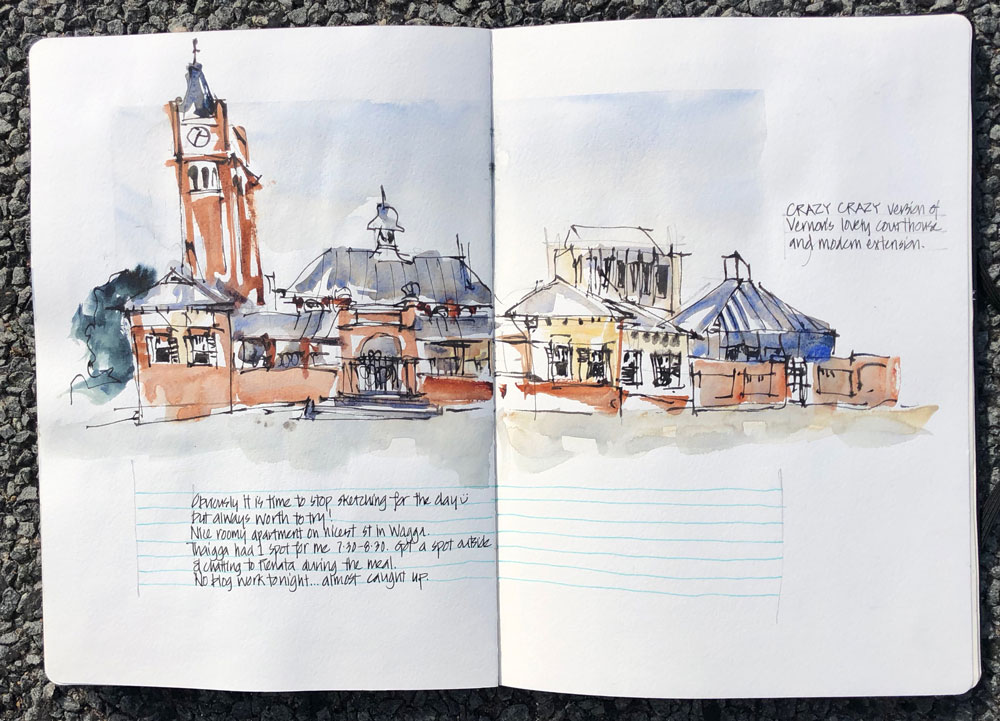 CRAZY CRAZY version of
Vernon's lovely courthouse
and modern extension.
Obviously it is time to stop sketching for the day
but always worth to try!
Nice roomy apartment on nicest st in Wagga.
Thaigga had 1 spot for me 7:30-8:30. Got a spot outside
& chatting to Renata during the meal.
No blog work tonight... almost caught up.